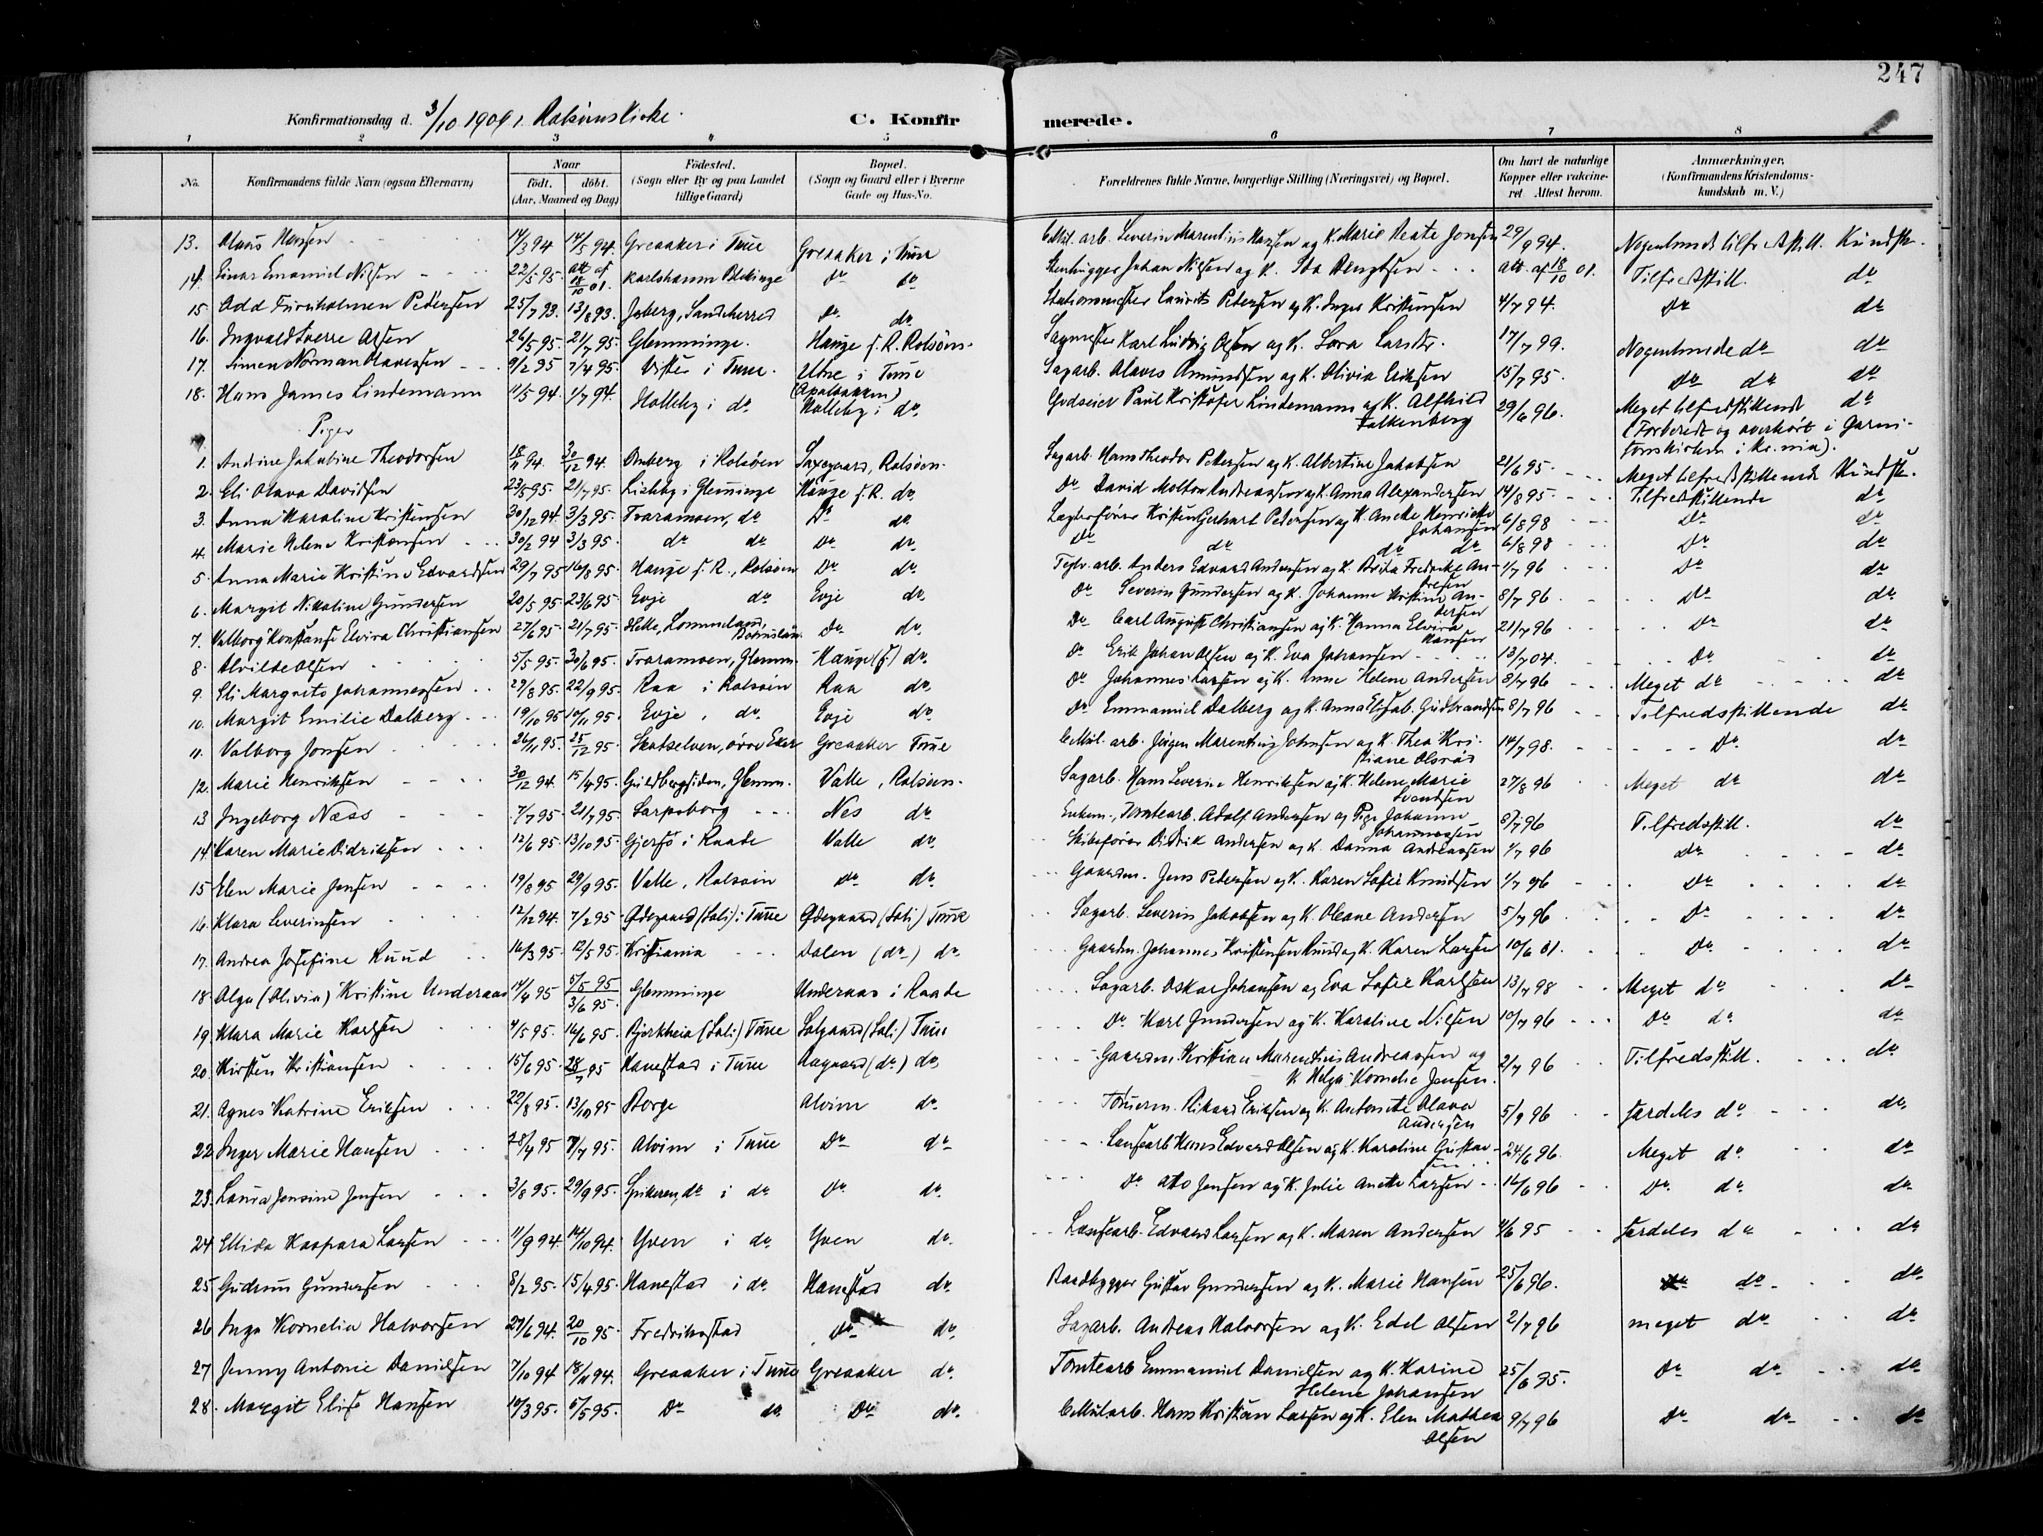 247
Konfirmationsdag d. 3/10 1909 i Rolsøens Kirke.
C. Konfirmerede.
1 2 3 4 5 6 7 8
No. Konfirmandens fulde Navn (ogsaa Efternavn)
Naar født. døbt. (Aar, Maaned og Dag)
Fødested. (Sogn eller By og paa Landet tillige Gaard)
Bopæl. (Sogn og Gaard eller i Byerne Gade og Hus-No.
Forældrenes fulde Navne, borgerlige Stilling (Næringsvei) og Bopæl.
Om havt de naturlige Kopper eller vakcineret. Attest herom.
Anmærkninger. (Konfirmandens Kristendomskundskab m. V.)
13. Olaus Hansen 14/3 94 14/5 94. Greaaker i Tune Greaaker i Tune Cellul. arb. Severin Marentius Hansen og K. Marie Beate Jonsen 29/9 94. Nogenlunde tilfredsstill. Kundsk.
14. Einar Emanuel Nilsen 22/5 95. att. af 18/10 01. Karlshamn Blekinge do do Stenhugger Johan Nilsen og K. Ida Bengtsen att. af 18/10 01. Tilfredsstill. do
15 Odd Furuholmen Pedersen 25/7 93. 13/8 93. Jaberg, Sandeherred Do. do. Stationsmester Laurits Petersen og K. Inger Kristensen 4/7 94. Do do
16. Ingvald Sverre Olsen 26/5 95. 21/7 95. Glemminge. Hauge f. R. Rolsøen. Sagmester Karl Ludvig Olsen og K. Lora Larsdr. 17/7 99. Nogenlunde do do
17. Simen Norman Olavesen 9/2 95 7/4 95. Vister i Tune. Utne i Tune Sagarb. Olaves Amundsen og K. Olivia Eriksen 15/7 95. Do do do
18. Hans James Lindemann 11/5 94. 1/7 94. Holleby i do (Apalsaken) Holleby i do. Godseier Paul Kristofer Lindemann og K. Alfhild Falkenberg 29/6 96. Meget tilfredstillende do (Forberedt og overhørt i Garnisonskirken i Kr.nia).
Piger
1. Andrine Jakobine Theodorsen 18/11 94. 30/12 94. Omberg i Rolsøen Saxegaard, Rolsøen. Sagarb. Hans Theodor Pettersen og K. Albertine Jakobsen 21/6 95. Meget tilfredsstillende Kundsk.
2. Eli Olava Davidsen 23/5 95. 21/7 95. Lisleby i Glemminge Hauge f. R. do. Do David Molton Andreassen og K. Anna Alexandersen 14/8 95. Tilfredsstillende do
3. Anna Karoline Kristensen 30/12 94. 3/3 95. Traramoen, do Do do. Lagterfører Kristen Gerhart Petersen og K. Anette Henrikke Johansen 6/8 98 Do do
4. Marie Helene Kristensen 30/12 94 3/3 95. do do Do do. Do do do do 6/8 98 Do do
5. Anna Marie Kristine Edvardsen 29/7 95 16/8 95. Hauge f. R., Rolsøen Do do. Teglv. arb. Anders Edvard Andersen og K. Brita Fredrikke Andresen 1/7 96 Do do
6. Margit Nikoline Gundersen 20/5 95 23/6 95 Evje do Evje do. Do Severin Gundersen og K. Johanne Kristine Andersen 8/7 96 Do do
7. Valborg Konstanse Elvira Christiansen 27/6 95. 21/7 95. Hette, Lommeland, Bohuslän. Do do. Do Carl August Christiansen og K. Hanna Elvira Hansen 21/7 96 Do do
8. Alvilde Olsen 5/5 95. 30/6 95. Traramoen, Glemm. Hauge (f) do. Do Erik Johan Olsen og K. Eva Johansen 13/7 04. Do do
9. Eli Margrete Johannessen 29/8 95. 22/9 95. Raa i Rolsøen Raa do. Do Johannes Larsen og K. Anne Helene Andersen 8/7 96 Meget do do
10. Margit Emilie Dalberg 19/10 95 10/11 95. Evje, do. Evje do. Do Emmanuel Dalberg og K. Anna Elisab. Gudbrandsen 8/7 96 Tilfredsstillende do
11. Valborg Jonsen 26/11 95. 25/12 95. Skotselven, øvre Eker Greaaker Tune Cellul. arb. Jørgen Marentius Johnsen og K. Thea Kristiane Olsrød 14/7 98. Do. do
12. Marie Henriksen 30/12 94. 15/4 95. Guldbergsiden, Glemm. Valle, Rolsøen. Sagarb. Hans Severin Henriksen og K. Helene Marie Svendsen 27/8 96 Meget do do
13 Ingeborg Næss 7/7 95. 21/7 95. Sarpsborg Nes do Enkem., Tomtearb. Adolf Andersen og Pige Johanne Johannessen 8/7 96 Tilfredsstill. do
14. Karen Marie Didriksen 12/6 95. 13/10 95. Gjersø i Raade Valle do. Skibsfører Didrik Andersen og K. Danna Andreassen 1/7 96 do do
15 Elen Marie Jensen 19/8 95 29/9 95. Valle, Rolsøen Do do. Gaardm. Jens Petersen og K. Karen Sofie Knudsen 1/7 96 Do do
16. Klara Severinsen 12/12 94. 7/2 95. Ødegaard (Soli) i Tune Ødegaard (Soli) Tune Sagarb. Severin Jakobsen og K. Oleane Andersen 5/7 96 Do do
17. Andrea Josefine Ruud 16/3 95. 12/5 95. Kristiania Dalen (do) do Gaardm. Johannes Kristensen Ruud og K. Karen Larsen 10/6 01. Do. do
18 Olga (Olivia) Kristine Undersaas 14/4 95 5/5 95 3/6 95. Glemminge Undernaas i Raade Sagarb. Oskar Johansen og Eva Sofie Karlsen 13/7 98 Meget do do
19 Klara Marie Karlsen 4/5 95. 16/6 95. Bjerkheia (Soli) Tune Solgaard (Soli) Tune Do. Karl Gundersen og K. Karoline Nilsen 10/7 96 Do do do
20. Kirsten Kristiansen 15/6 95. 28/7 95 Hanestad i Tune Aagaard (do) do, Gaardm. Kristian Marentius Andreassen og K. Helga Kornelie Jensen. 2/7 96 Tilfredsstill. do
21. Agnes Katrine Eriksen 22/8 95. 13/10 95 Borge Alvim do. Tømmerm. Rikard Eriksen og K. Antonette Olava Andersen 5/9 96 særdeles do do
22 Inger Marie Hansen 28/4 95 7/7 95. Alvim i Tune Do do. Lænsearb. Hans Edvard Olsen og K. Karoline Gustavsen 24/6 96. Meget do do
23. Laura Jensine Jensen 3/8 95. 29/9 95. Spikeren, do i do Do. do. Do. Otto Jensen og K. Julie Anette Larsen 16/6 96 Do. do do
24 Ellida Kaspara Larsen 11/9 94. 14/10 94. Yven i do. Yven do. Lænsearb. Edvard Larsen og K. Maren Andersen 4/6 95 særdeles do do
25 Gudrun Gundersen 8/2 95. 15/4 95. Hanestad i do. Hanestad do Baadbygger Gustav Gundersen og K. Marie Hansen 25/6 96. Do do do.
26 Inga Kornelia Halvorsen 27/6 94. 20/10 95. Fredrikstad Do do. Sagarb. Andreas Halvorsen og K. Edel Olsen 2/7 96 meget do do.
27 Jenny Antonie Danielsen 7/10 94 18/11 94. Greaaker i Tune Greaaker do. Tomtearb. Emmanuel Danielsen og K. Karine Helene Johansen 25/6 95. Do do do
28. Margit Elise Hansen 10/3 95. 5/5 95. Do do. Do do. Cellul. arb. Hans Kristian Larsen og K. Elen Mathea Olsen 9/7 96 Do do do